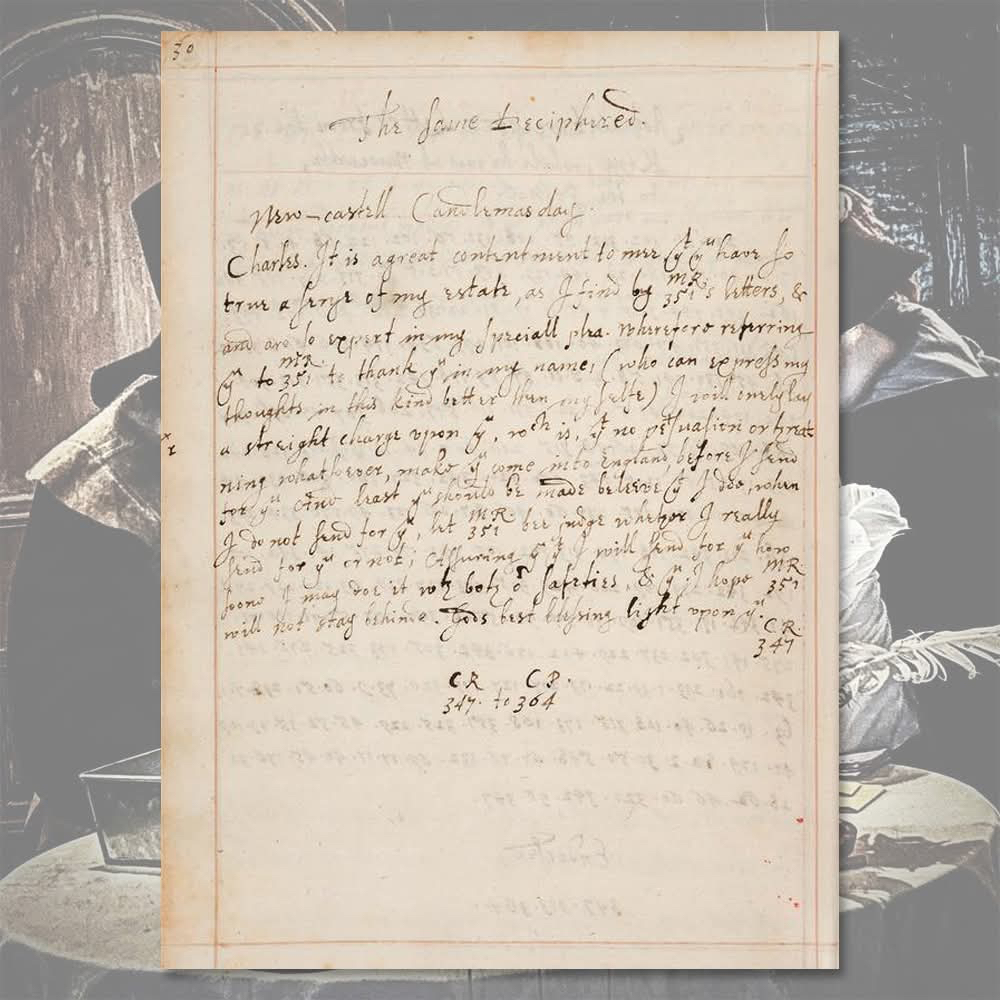 30
The same Deciphered.
New-castell Candlemas day.
Charles. It is a great contentment to mee yt yu have so
true a sense of my estate, as I find by
MR
351's letters, &
and are so expert in my speciall plea. wherefore referring
yu to
MR
351 to thank yu in my name, (who can express my
thoughts in this kind better then my selfe) I will onely lay
a streight charge upon yu, wch is, yt no pesuasion or threat
ning whatsoever, make yu come into England, before I send
for yu. And least yu should be made beleeve yt I doe, when
I do not send for yu, let
MR
351 bee judge whether I really
send for yu or not; Assuring yu yt I will send for yu how
soone I may doe it wth both or safeties, & yt, I hope
MR
351
will not stay behinde. Gods best blessing light upon yu.
C R.
347
C R C P.
347. to 364